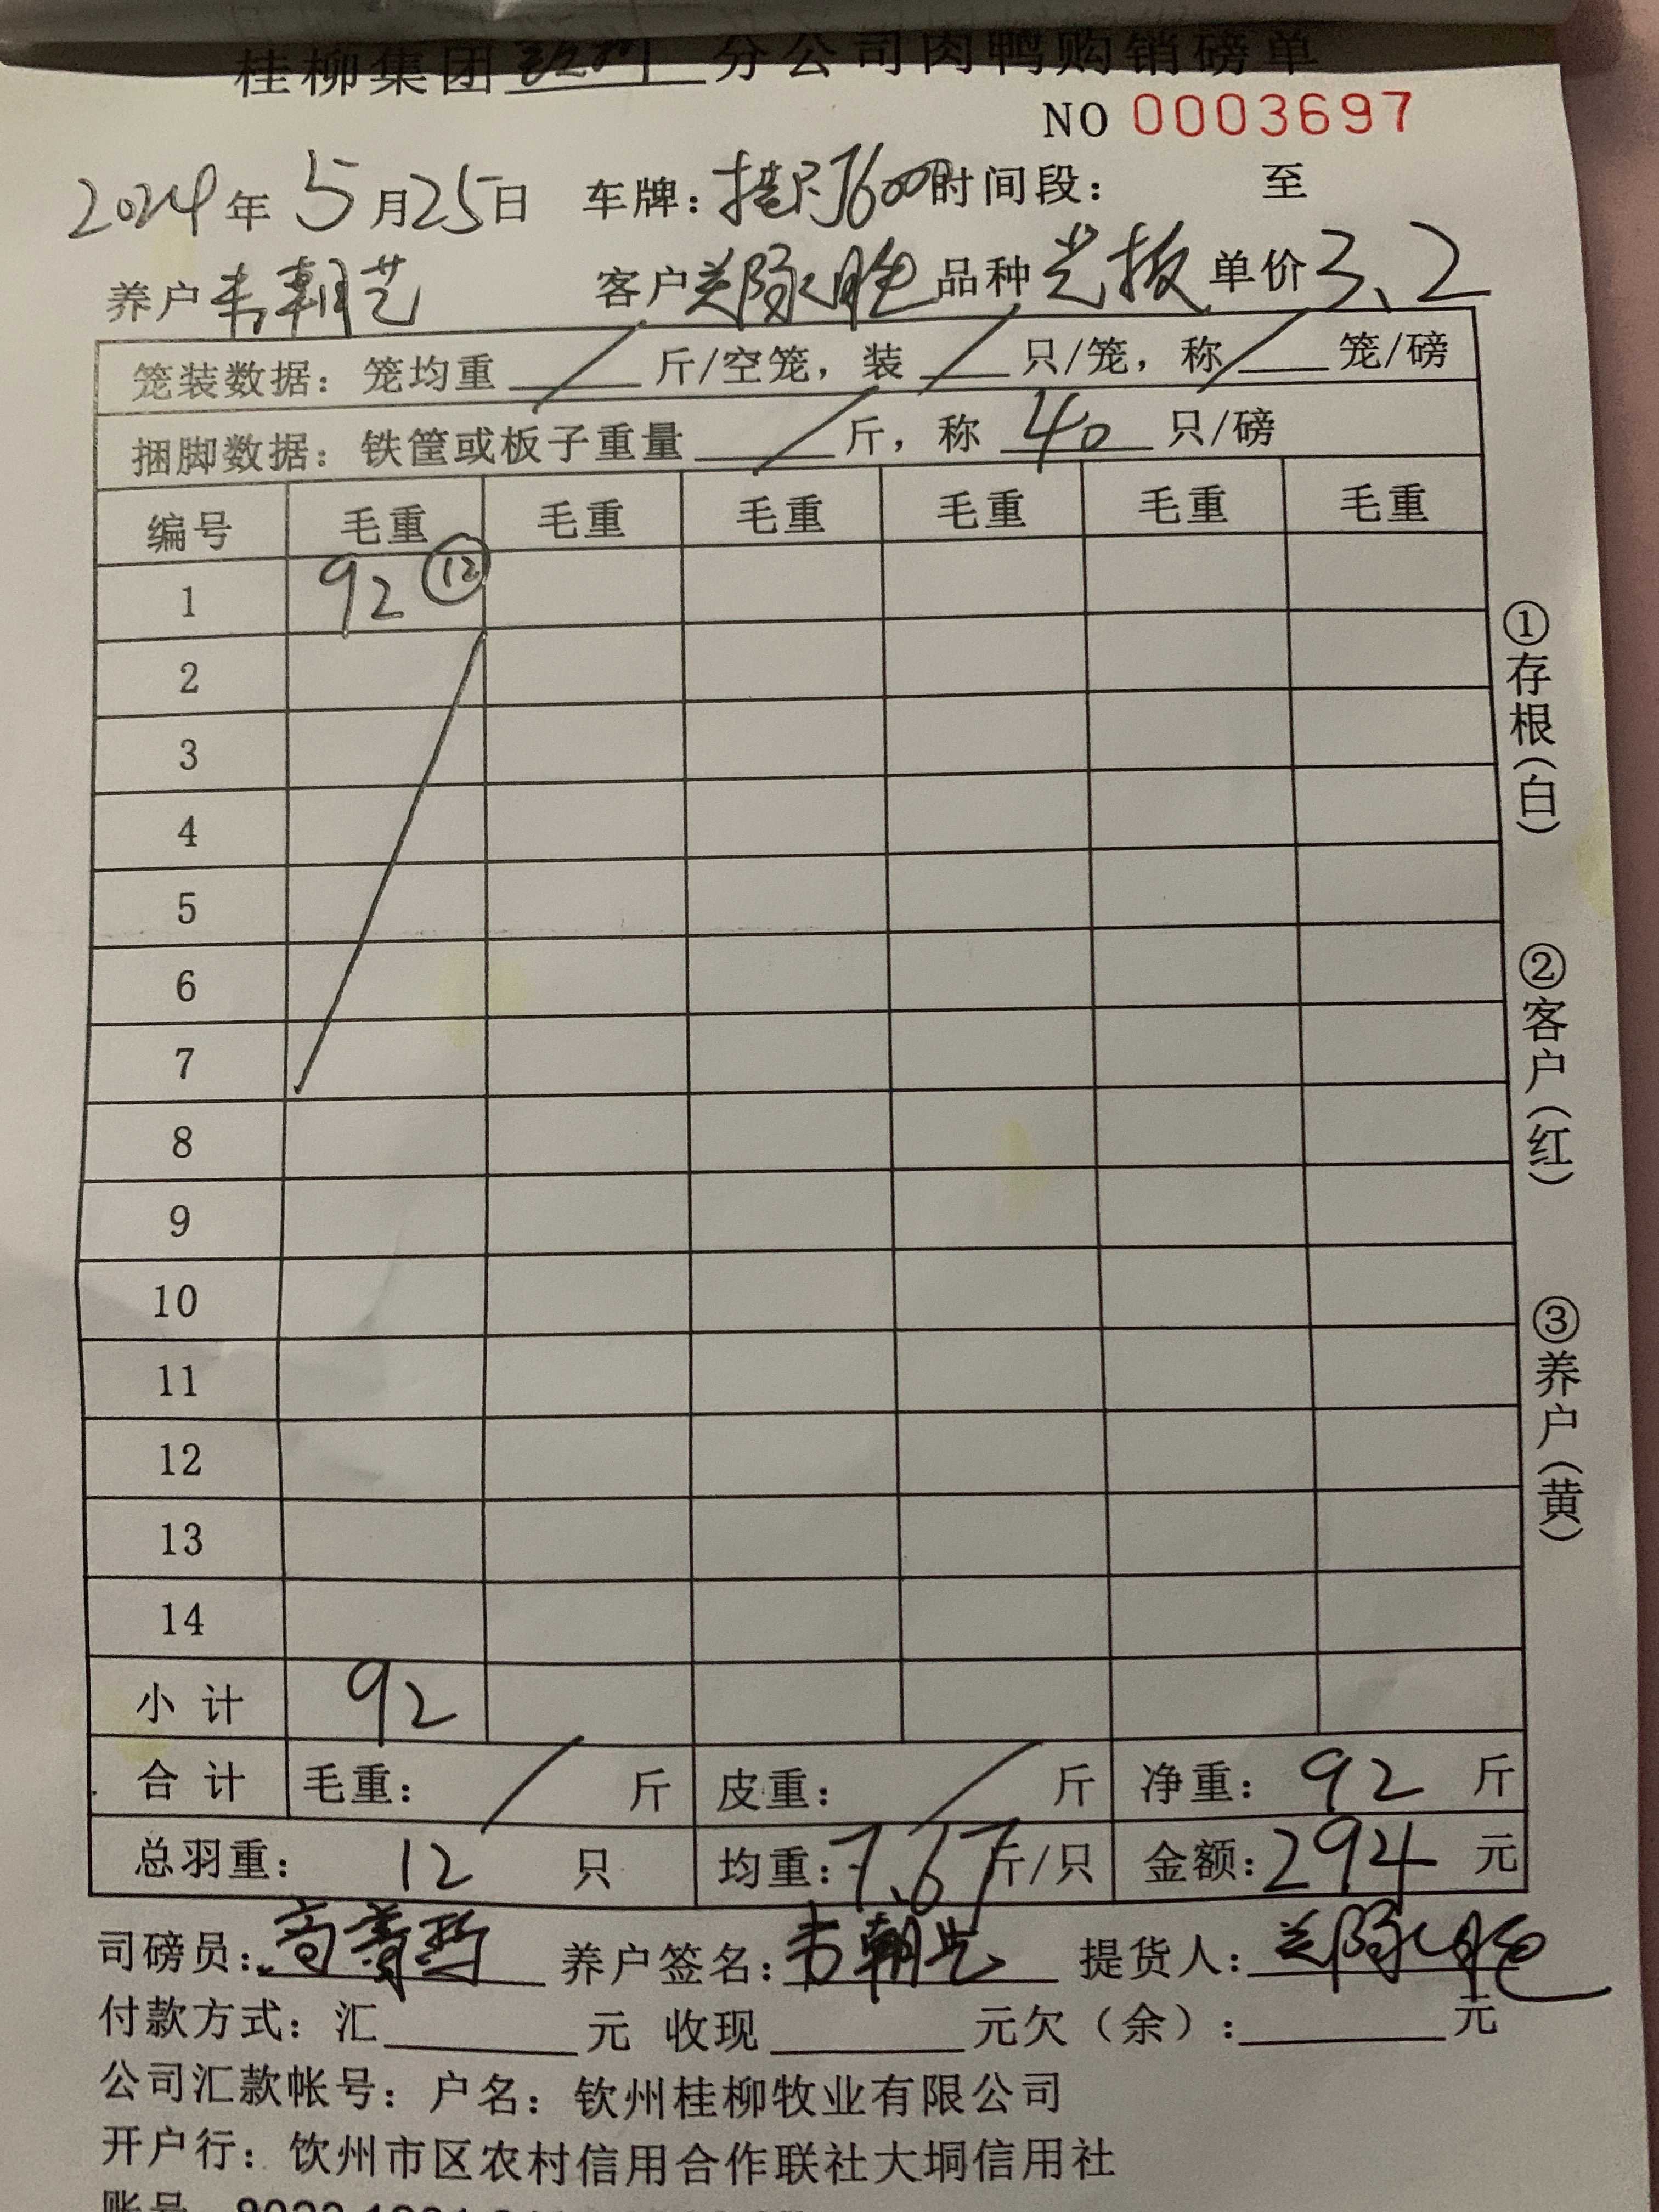 桂柳集团钦州分公司肉鸭购销磅单
NO 0003697
2024年5月25日 车牌: 时间段: 至
养户韦朝艺 客户 品种光板 单价3、2
笼装数据: 笼均重 / 斤/空笼, 装 / 只/笼, 称 / 笼/磅
捆脚数据: 铁筐或板子重量 / 斤, 称 40 只/磅
编号 毛重 毛重 毛重 毛重 毛重 毛重
1 92 ⑫
2
3
4
5
6
7
8
9
10
11
12
13
14
小计 92
合计 毛重: / 斤 皮重: / 斤 净重: 92 斤
总羽重: 12 只 均重: 7.67斤/只 金额:294 元
司磅员: 养户签名:韦朝艺 提货人:
付款方式: 汇 元 收现 元欠(余): 元
公司汇款帐号: 户名: 钦州桂柳牧业有限公司
开户行: 钦州市区农村信用合作联社大垌信用社
①存根(白)
②客户(红)
③养户(黄)